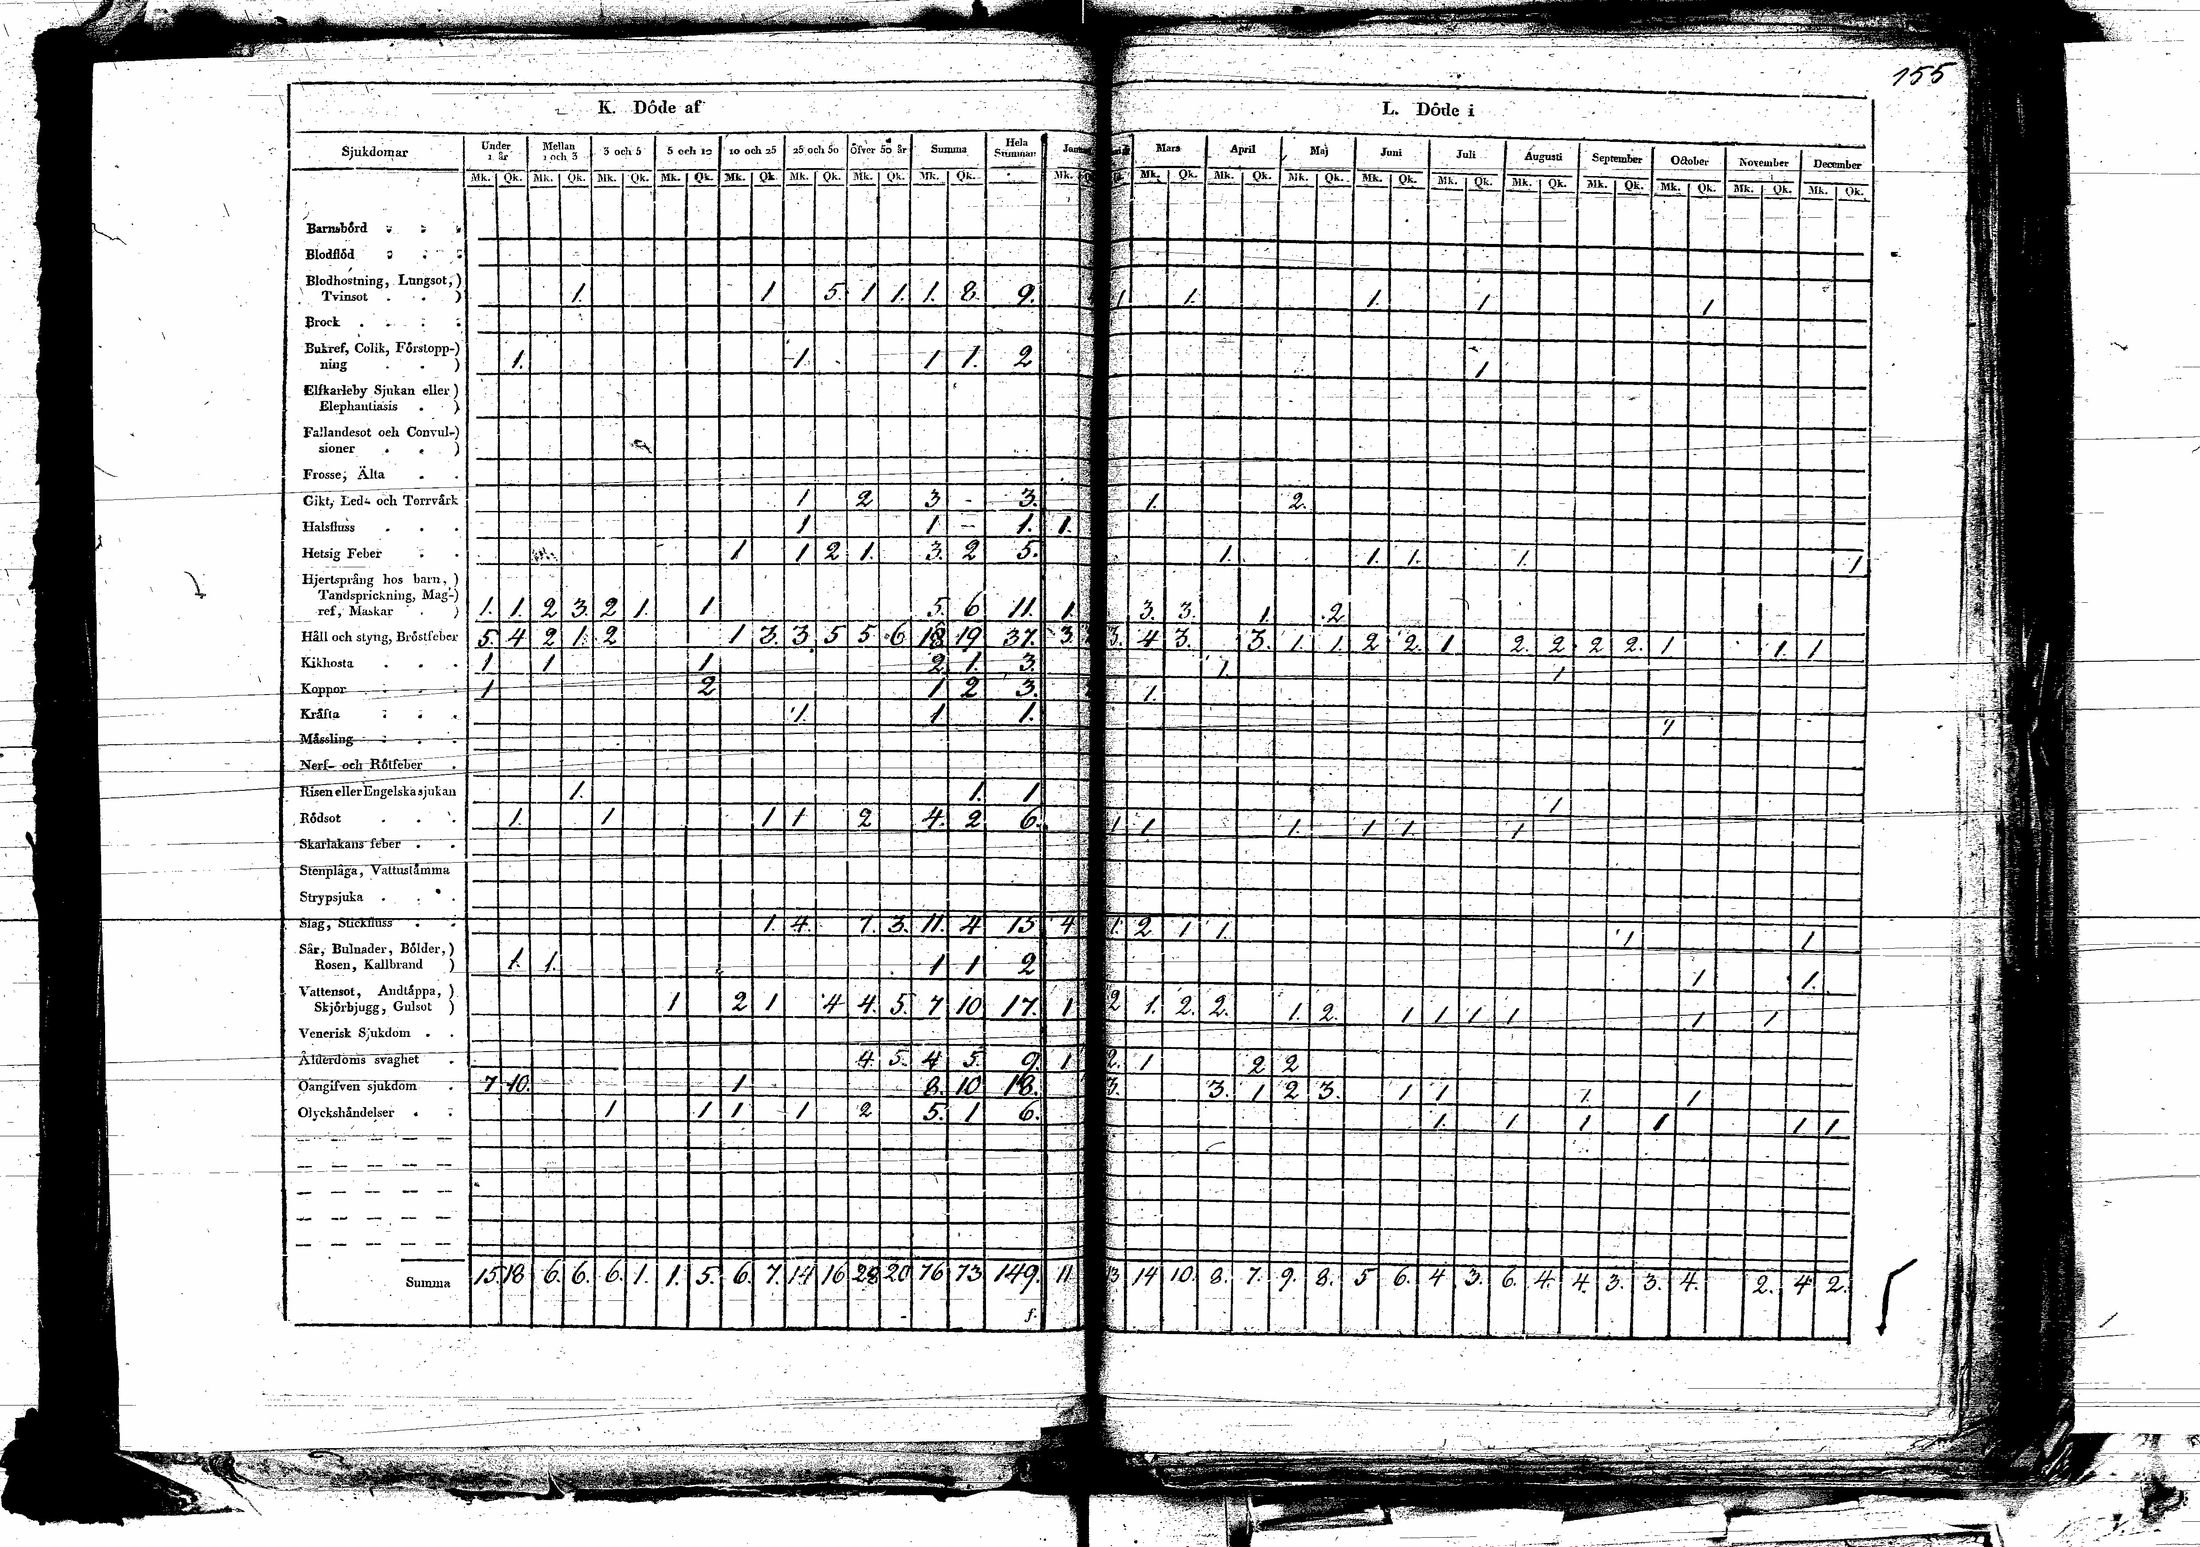 155
K. Döde af
L. Döde i
Sjukdomar Under 1 år Mellan 1 och 3 3 och 5 5 och 10 10 och 25 25 och 50 Öfver 50 år Summa Hela Summan Mars April Maj Juni Juli Augusti September October November December
Mk. Qk. Mk. Qk. Mk. Qk. Mk. Qk. Mk. Qk. Mk. Qk. Mk. Qk. Mk. Qk. Mk. Mk. Qk. Mk. Qk. Mk. Qk. Mk. Qk. Mk. Qk. Mk. Qk. Mk. Qk. Mk. Qk. Mk. Qk. Mk. Qk.
Barnsbörd
Blodflöd
Blodhostning, Lungsot,)
Tvinsot . . ) 1. 1 5. 1 1. 1. 8. 9. 1 1. 1. 1 1
Brock . . . .
Bukref, Colik, Förstopp-)
ning . . ) 1. 1. 1 1. 2 1
Elfkarleby Sjukan eller)
Elephantiasis . )
Fallandesot och Convul-)
sioner . . )
Frosse, Älta . .
Gikt, Led- och Torrvärk 1 2 3 - 3. 1. 2.
Halsfluss . . . 1 1. - 1. 1.
Hetsig Feber . . 1 1 2 1. 3. 2 5. 1. 1. 1. 1. 1
Hjertsprång hos barn, )
Tandsprickning, Mag-)
ref, Maskar . ) 1. 1. 2 3. 2 1. 1 5. 6 11. 1. 3. 3. 1. 2.
Håll och styng, Bröstfeber 5. 4 2 1. 2 1 3. 3. 5 5 6 18 19 37. 3 3. 4 3. 3. 1. 1. 2 2. 1. 2. 2. 2 2. 1 1. 1
Kikhosta . . . 1 1 1 2 1. 3. 1. 1
Koppor . . . 1 2 1 2 3. 1.
Kräfta . . . 1. 1 1. 1
Mässling . . .
Nerf- och Rötfeber .
Risen eller Engelska sjukan 1. 1. 1 1
Rödsot . . . 1. 1 1 1 2 4. 2 6. 1 1 1. 1 1 1
Skarlakans feber . .
Stenplåga, Vattustämma
Strypsjuka . . .
Slag, Stickfluss . . 1. 4. 7. 3. 11. 4 15 4 1. 2 1 1. 1 1
Sår, Bulnader, Bölder, )
Rosen, Kallbrand ) 1. 1. 1 1 2 1 1.
Vattensot, Andtäppa, )
Skjörbjugg, Gulsot ) 1 2 1 4 4. 5. 7 10 17. 1 2 1. 2. 2. 1. 2. 1 1 1 1 1 1
Venerisk Sjukdom . .
Ålderdoms svaghet . 4. 5. 4 5. 9. 1 2. 1 2 2
Oangifven sjukdom . 7 10. 1 8. 10 18. 3. 3. 1 2 3. 1 1 1. 1
Olyckshändelser . . 1 1 1 1 2 5. 1 6. 1. 1 1 1 1 1
Summa 15. 18 6. 6. 6. 1. 1. 5. 6. 7. 14 16 28 20 76 73 149. 11 13 14 10. 8. 7. 9. 8. 5 6. 4 3. 6. 4. 4. 3. 3. 4. 2. 4 2.
f.